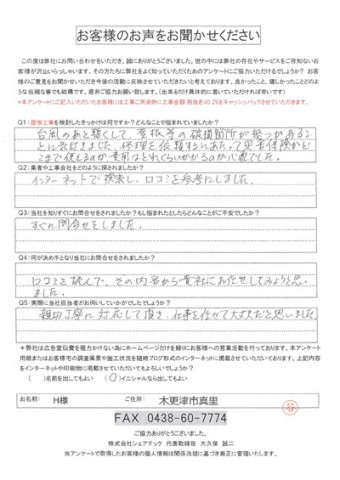 お客様のお声をお聞かせください
この度は弊社にお問い合わせをいただき、誠にありがとうございました。世の中には弊社の存在やサービスをご存知ないお
客様が沢山いらっしゃいます。その方たちに弊社をよく知っていただくためのアンケートにご協力いただけるでしょうか?お客
様のご意見をお聞かせいただき今後の活動に反映させていただきたいと考えております。良かったこと、嬉しかったことどのよ
うな些細な事でも結構です。是非ご協力お願い致します。(出来るだけ具体的に書いていただければ幸いです)
*本アンケートにご記入いただいたお客様には工事ご依頼時に工事金額(税抜き)の2%をキャッシュバックさせていただきます。
Q1:屋根工事を検討したきっかけは何ですか?どんなことで悩まれていましたか?
台風のあと暫くして、屋根等の破損箇所が幾つかあるこ
とに気付きました。修理を依頼するにあたって災害保険がど
こまで使えるのか費用はどれくらいかかるのか心配でした。
Q2:業者や工事会社をどのように探しましたか?
インターネットで検索し、口コミを参考にしました。
Q3:当社を知りすぐにお問合せをされましたか?もし悩まれたとしたらどんなことがご不安でしたか?
すぐに問合せをしました。
Q4:何が決め手となり当社にお問合せをされましたか?
口コミを読んで、その内容から貴社にお任せしてみようと思い
ました。
Q5:実際に当社担当者がお伺いしていかがでしたでしょうか?
親切丁寧に対応して頂き、仕事を任せて大丈夫だと思いました。
*弊社は広告宣伝費を極力かけない為にホームページだけを頼りにお客様への営業活動を行っております。本アンケート
用紙またはお客様宅の調査風景や施工状況を随時ブログ形式のインターネットに掲載させていただいております。上記内容
をインターネットや印刷物に掲載させていただいてもよろしいでしょうか?
( )名前を出してもよい (○)イニシャルなら出してもよい
お名前: H様 ご住所: 木更津市真里
FAX 0438-60-7774
ご協力ありがとうございました。
株式会社シェアテック 代表取締役 大久保 誠二
※アンケートで取得したお客様の個人情報は関係法規に基づき厳正に管理いたします。